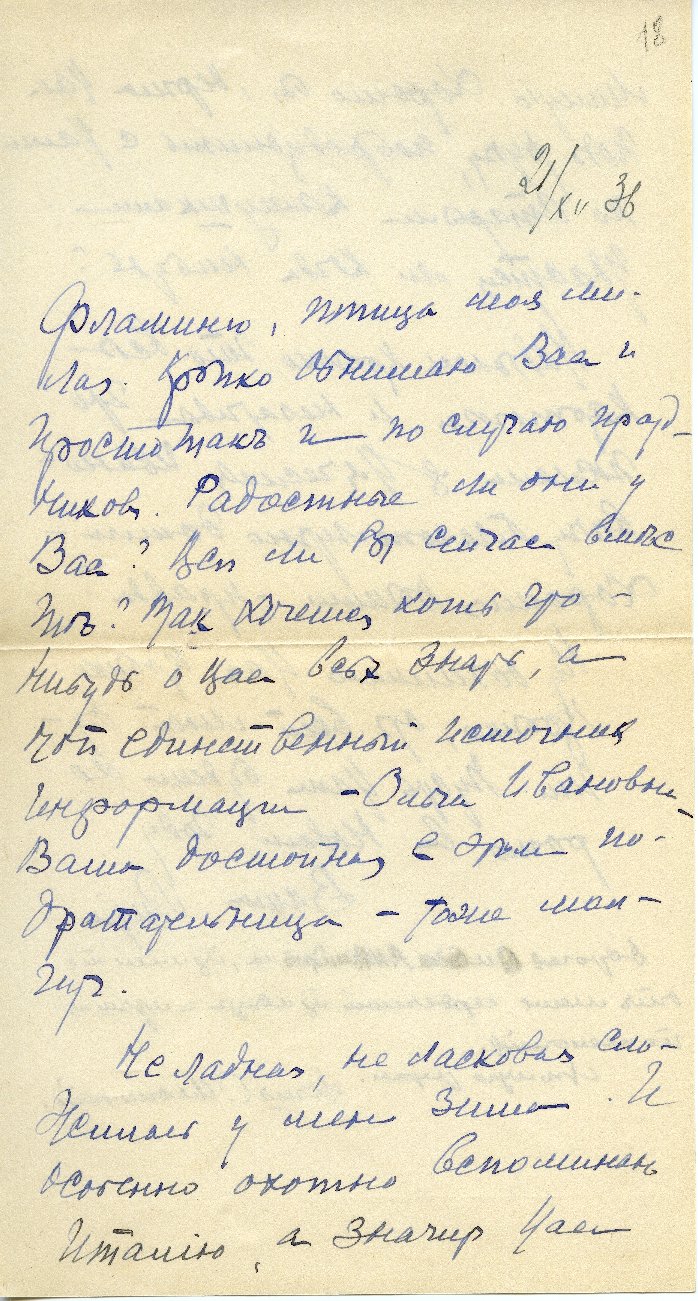 18
21/XII 36
Фламинго, птица моя ми-
лая. Крѣпко обнимаю Васъ и
просто такъ и по случаю празд-
никовъ. Радостные ли они у
Васъ? Всѣ ли Вы сейчас вмѣс
тѣ? Так хочется хоть что-
нибудь о Вас всѣх знать, а
мой единственный источник
информации - Ольга Ивановна -
Ваша достойная в этом по-
дражательница - тоже мол-
чит.
Не ладная, не ласковая сло-
жилась у меня зима. И
особенно охотно вспоминаешь
Италію, а значит Вас